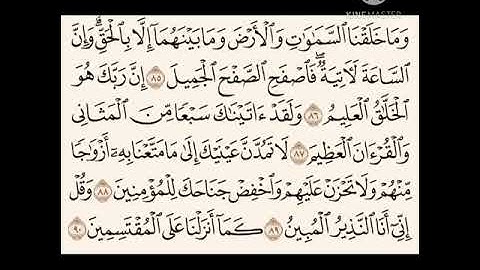 KINEMASTER
وَمَا خَلَقْنَا ٱلسَّمَٰوَٰتِ وَٱلْأَرْضَ وَمَا بَيْنَهُمَآ إِلَّا بِٱلْحَقِّ ۗ وَإِنَّ
ٱلسَّاعَةَ لَءَاتِيَةٌ ۖ فَٱصْفَحِ ٱلصَّفْحَ ٱلْجَمِيلَ ٨٥ إِنَّ رَبَّكَ هُوَ
ٱلْخَلَّٰقُ ٱلْعَلِيمُ ٨٦ وَلَقَدْ ءَاتَيْنَٰكَ سَبْعًا مِّنَ ٱلْمَثَانِى
وَٱلْقُرْءَانَ ٱلْعَظِيمَ ٨٧ لَا تَمُدَّنَّ عَيْنَيْكَ إِلَىٰ مَا مَتَّعْنَا بِهِۦٓ أَزْوَٰجًا
مِّنْهُمْ وَلَا تَحْزَنْ عَلَيْهِمْ وَٱخْفِضْ جَنَاحَكَ لِلْمُؤْمِنِينَ ٨٨ وَقُلْ
إِنِّىٓ أَنَا ٱلنَّذِيرُ ٱلْمُبِينُ ٨٩ كَمَآ أَنزَلْنَا عَلَى ٱلْمُقْتَسِمِينَ ٩٠